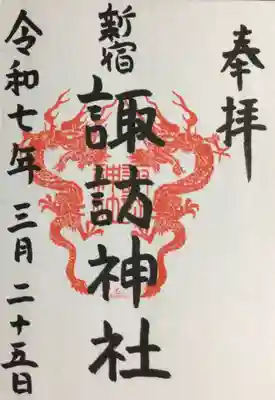 奉拝
新宿
諏訪神社
令和七年 三月 二十五日